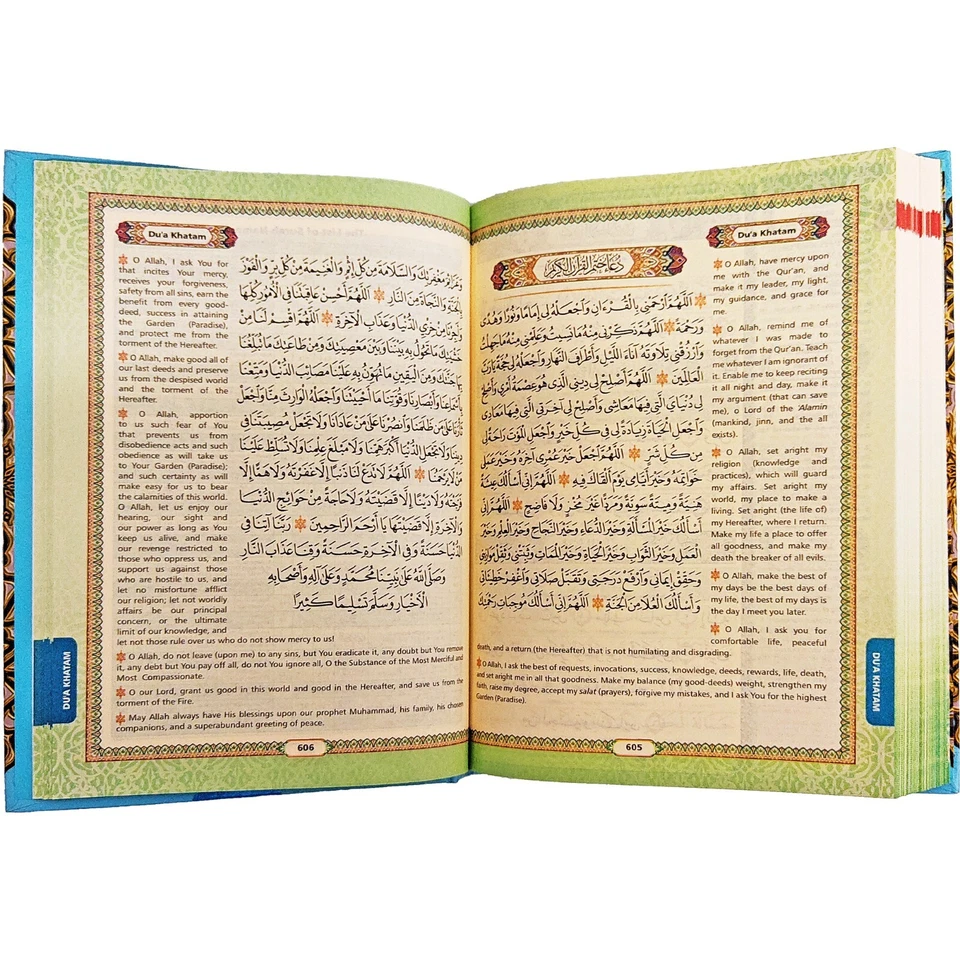 Du'a Khatam
دُعَاءُ خَتْمِ الْقُرْآنِ الْكَرِيمِ
اَللَّهُمَّ ارْحَمْنِي بِالْقُرْءَانِ وَاجْعَلْهُ لِي إِمَامًا وَنُورًا وَهُدًى
وَرَحْمَةً اَللَّهُمَّ ذَكِّرْنِي مِنْهُ مَا نَسِيتُ وَعَلِّمْنِي مِنْهُ مَا جَهِلْتُ
وَارْزُقْنِي تِلَاوَتَهُ آنَاءَ اللَّيْلِ وَأَطْرَافَ النَّهَارِ وَاجْعَلْهُ لِي حُجَّةً يَا رَبَّ
الْعَالَمِينَ اَللَّهُمَّ أَصْلِحْ لِي دِينِي الَّذِي هُوَ عِصْمَةُ أَمْرِي وَأَصْلِحْ
لِي دُنْيَايَ الَّتِي فِيهَا مَعَاشِي وَأَصْلِحْ لِي آخِرَتِي الَّتِي فِيهَا مَعَادِي
وَاجْعَلِ الْحَيَاةَ زِيَادَةً لِي فِي كُلِّ خَيْرٍ وَاجْعَلِ الْمَوْتَ رَاحَةً لِي
مِنْ كُلِّ شَرٍّ اَللَّهُمَّ اجْعَلْ خَيْرَ عُمْرِي آخِرَهُ وَخَيْرَ عَمَلِي
خَوَاتِمَهُ وَخَيْرَ أَيَّامِي يَوْمَ أَلْقَاكَ فِيهِ اَللَّهُمَّ إِنِّي أَسْأَلُكَ عِيشَةً
هَنِيَّةً وَمِيتَةً سَوِيَّةً وَمَرَدًّا غَيْرَ مُخْزٍ وَلَا فَاضِحٍ اَللَّهُمَّ إِنِّي
أَسْأَلُكَ خَيْرَ الْمَسْأَلَةِ وَخَيْرَ الدُّعَاءِ وَخَيْرَ النَّجَاحِ وَخَيْرَ الْعِلْمِ وَخَيْرَ
الْعَمَلِ وَخَيْرَ الثَّوَابِ وَخَيْرَ الْحَيَاةِ وَخَيْرَ الْمَمَاتِ وَثَبِّتْنِي وَثَقِّلْ مَوَازِينِي
وَحَقِّقْ إِيمَانِي وَارْفَعْ دَرَجَتِي وَتَقَبَّلْ صَلَاتِي وَاغْفِرْ خَطِيئَاتِي
وَأَسْأَلُكَ الْعُلَا مِنَ الْجَنَّةِ اَللَّهُمَّ إِنِّي أَسْأَلُكَ مُوجِبَاتِ رَحْمَتِكَ
O Allah, have mercy upon
me with the Qur'an, and
make it my leader, my light,
my guidance, and grace for
me.
O Allah, remind me of
whatever I was made to
forget from the Qur'an. Teach
me whatever I am ignorant of
it. Enable me to keep reciting
it all night and day, make it
my argument (that can save
me), o Lord of the 'Alamin
(mankind, jinn, and the all
exists).
O Allah, set aright my
religion (knowledge and
practices), which will guard
my affairs. Set aright my
world, my place to make a
living. Set aright (the life of)
my Hereafter, where I return.
Make my life a place to offer
all goodness, and make my
death the breaker of all evils.
O Allah, make the best of
my days be the best days of
my life, the best of my days is
the day I meet you later.
O Allah, I ask you for
comfortable life, peaceful
death, and a return (the Hereafter) that is not humiliating and disgrading.
O Allah, I ask the best of requests, invocations, success, knowledge, deeds, rewards, life, death,
and set aright me in all that goodness. Make my balance (my good-deeds) weight, strengthen my
faith, raise my degree, accept my salat (prayers), forgive my mistakes, and I ask You for the highest
Garden (Paradise).
605
DU'A KHATAM
Du'a Khatam
وَعَزَائِمَ مَغْفِرَتِكَ وَالسَّلَامَةَ مِنْ كُلِّ إِثْمٍ وَالْغَنِيمَةَ مِنْ كُلِّ بِرٍّ وَالْفَوْزَ
بِالْجَنَّةِ وَالنَّجَاةَ مِنَ النَّارِ اَللَّهُمَّ أَحْسِنْ عَاقِبَتَنَا فِي الْأُمُورِ كُلِّهَا
وَأَجِرْنَا مِنْ خِزْيِ الدُّنْيَا وَعَذَابِ الْآخِرَةِ اَللَّهُمَّ اقْسِمْ لَنَا مِنْ
خَشْيَتِكَ مَا تَحُولُ بِهِ بَيْنَنَا وَبَيْنَ مَعْصِيَتِكَ وَمِنْ طَاعَتِكَ مَا تُبَلِّغُنَا
بِهَا جَنَّتَكَ وَمِنَ الْيَقِينِ مَا تُهَوِّنُ بِهِ عَلَيْنَا مَصَائِبَ الدُّنْيَا وَمَتِّعْنَا
بِأَسْمَاعِنَا وَأَبْصَارِنَا وَقُوَّتِنَا مَا أَحْيَيْتَنَا وَاجْعَلْهُ الْوَارِثَ مِنَّا وَاجْعَلْ
ثَأْرَنَا عَلَى مَنْ ظَلَمَنَا وَانْصُرْنَا عَلَى مَنْ عَادَانَا وَلَا تَجْعَلْ مُصِيبَتَنَا فِي
دِينِنَا وَلَا تَجْعَلِ الدُّنْيَا أَكْبَرَ هَمِّنَا وَلَا مَبْلَغَ عِلْمِنَا وَلَا تُسَلِّطْ عَلَيْنَا
مَنْ لَا يَرْحَمُنَا اَللَّهُمَّ لَا تَدَعْ لَنَا ذَنْبًا إِلَّا غَفَرْتَهُ وَلَا هَمًّا إِلَّا
فَرَّجْتَهُ وَلَا دَيْنًا إِلَّا قَضَيْتَهُ وَلَا حَاجَةً مِنْ حَوَائِجِ الدُّنْيَا
وَالْآخِرَةِ إِلَّا قَضَيْتَهَا يَا أَرْحَمَ الرَّاحِمِينَ رَبَّنَا آتِنَا فِي
الدُّنْيَا حَسَنَةً وَفِي الْآخِرَةِ حَسَنَةً وَقِنَا عَذَابَ النَّارِ
وَصَلَّى اللَّهُ عَلَى نَبِيِّنَا مُحَمَّدٍ وَعَلَى آلِهِ وَأَصْحَابِهِ
الْأَخْيَارِ وَسَلَّمَ تَسْلِيمًا كَثِيرًا
O Allah, I ask You for
that incites Your mercy,
receives your forgiveness,
safety from all sins, earn the
benefit from every good-
deed, success in attaining
the Garden (Paradise),
and protect me from the
torment of the Hereafter.
O Allah, make good all of
our last deeds and preserve
us from the despised world
and the torment of the
Hereafter.
O Allah, apportion
to us such fear of You
that prevents us from
disobedience acts and such
obedience as will take us
to Your Garden (Paradise);
and such certainty as will
make easy for us to bear
the calamities of this world.
O Allah, let us enjoy our
hearing, our sight and
our power as long as You
keep us alive, and make
our revenge restricted to
those who oppress us, and
support us against those
who are hostile to us, and
let no misfortune afflict
our religion; let not worldly
affairs be our principal
concern, or the ultimate
limit of our knowledge, and
let not those rule over us who do not show mercy to us!
O Allah, do not leave (upon me) to any sins, but You eradicate it, any doubt but You remove
it, any debt but You pay off all, do not You ignore all, O the Substance of the Most Merciful and
Most Compassionate.
O our Lord, grant us good in this world and good in the Hereafter, and save us from the
torment of the Fire.
May Allah always have His blessings upon our prophet Muhammad, his family, his chosen
companions, and a superabundant greeting of peace.
606
DU'A KHATAM